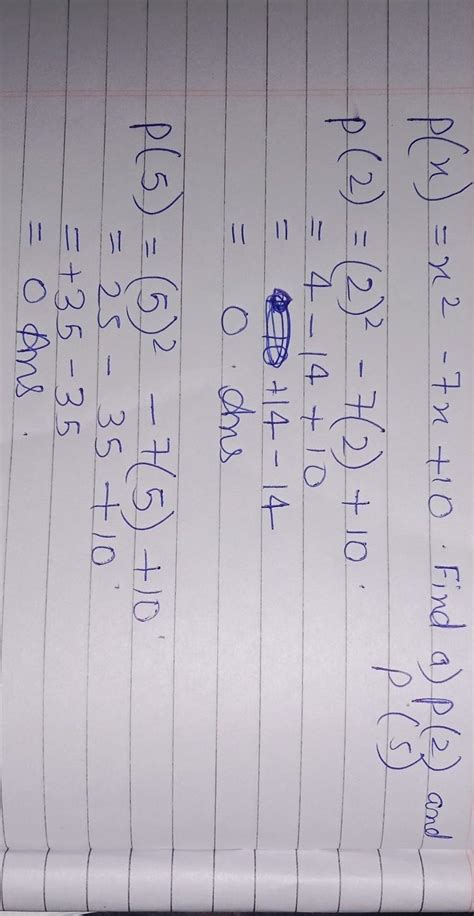 p(x) = x² - 7x + 10 . Find a) p(2) and
p(5)
p(2) = (2)² - 7(2) + 10 .
= 4 - 14 + 10
= +14 - 14
= 0 . Ans
p(5) = (5)² - 7(5) + 10 .
= 25 - 35 + 10 .
= +35 - 35
= 0 Ans .